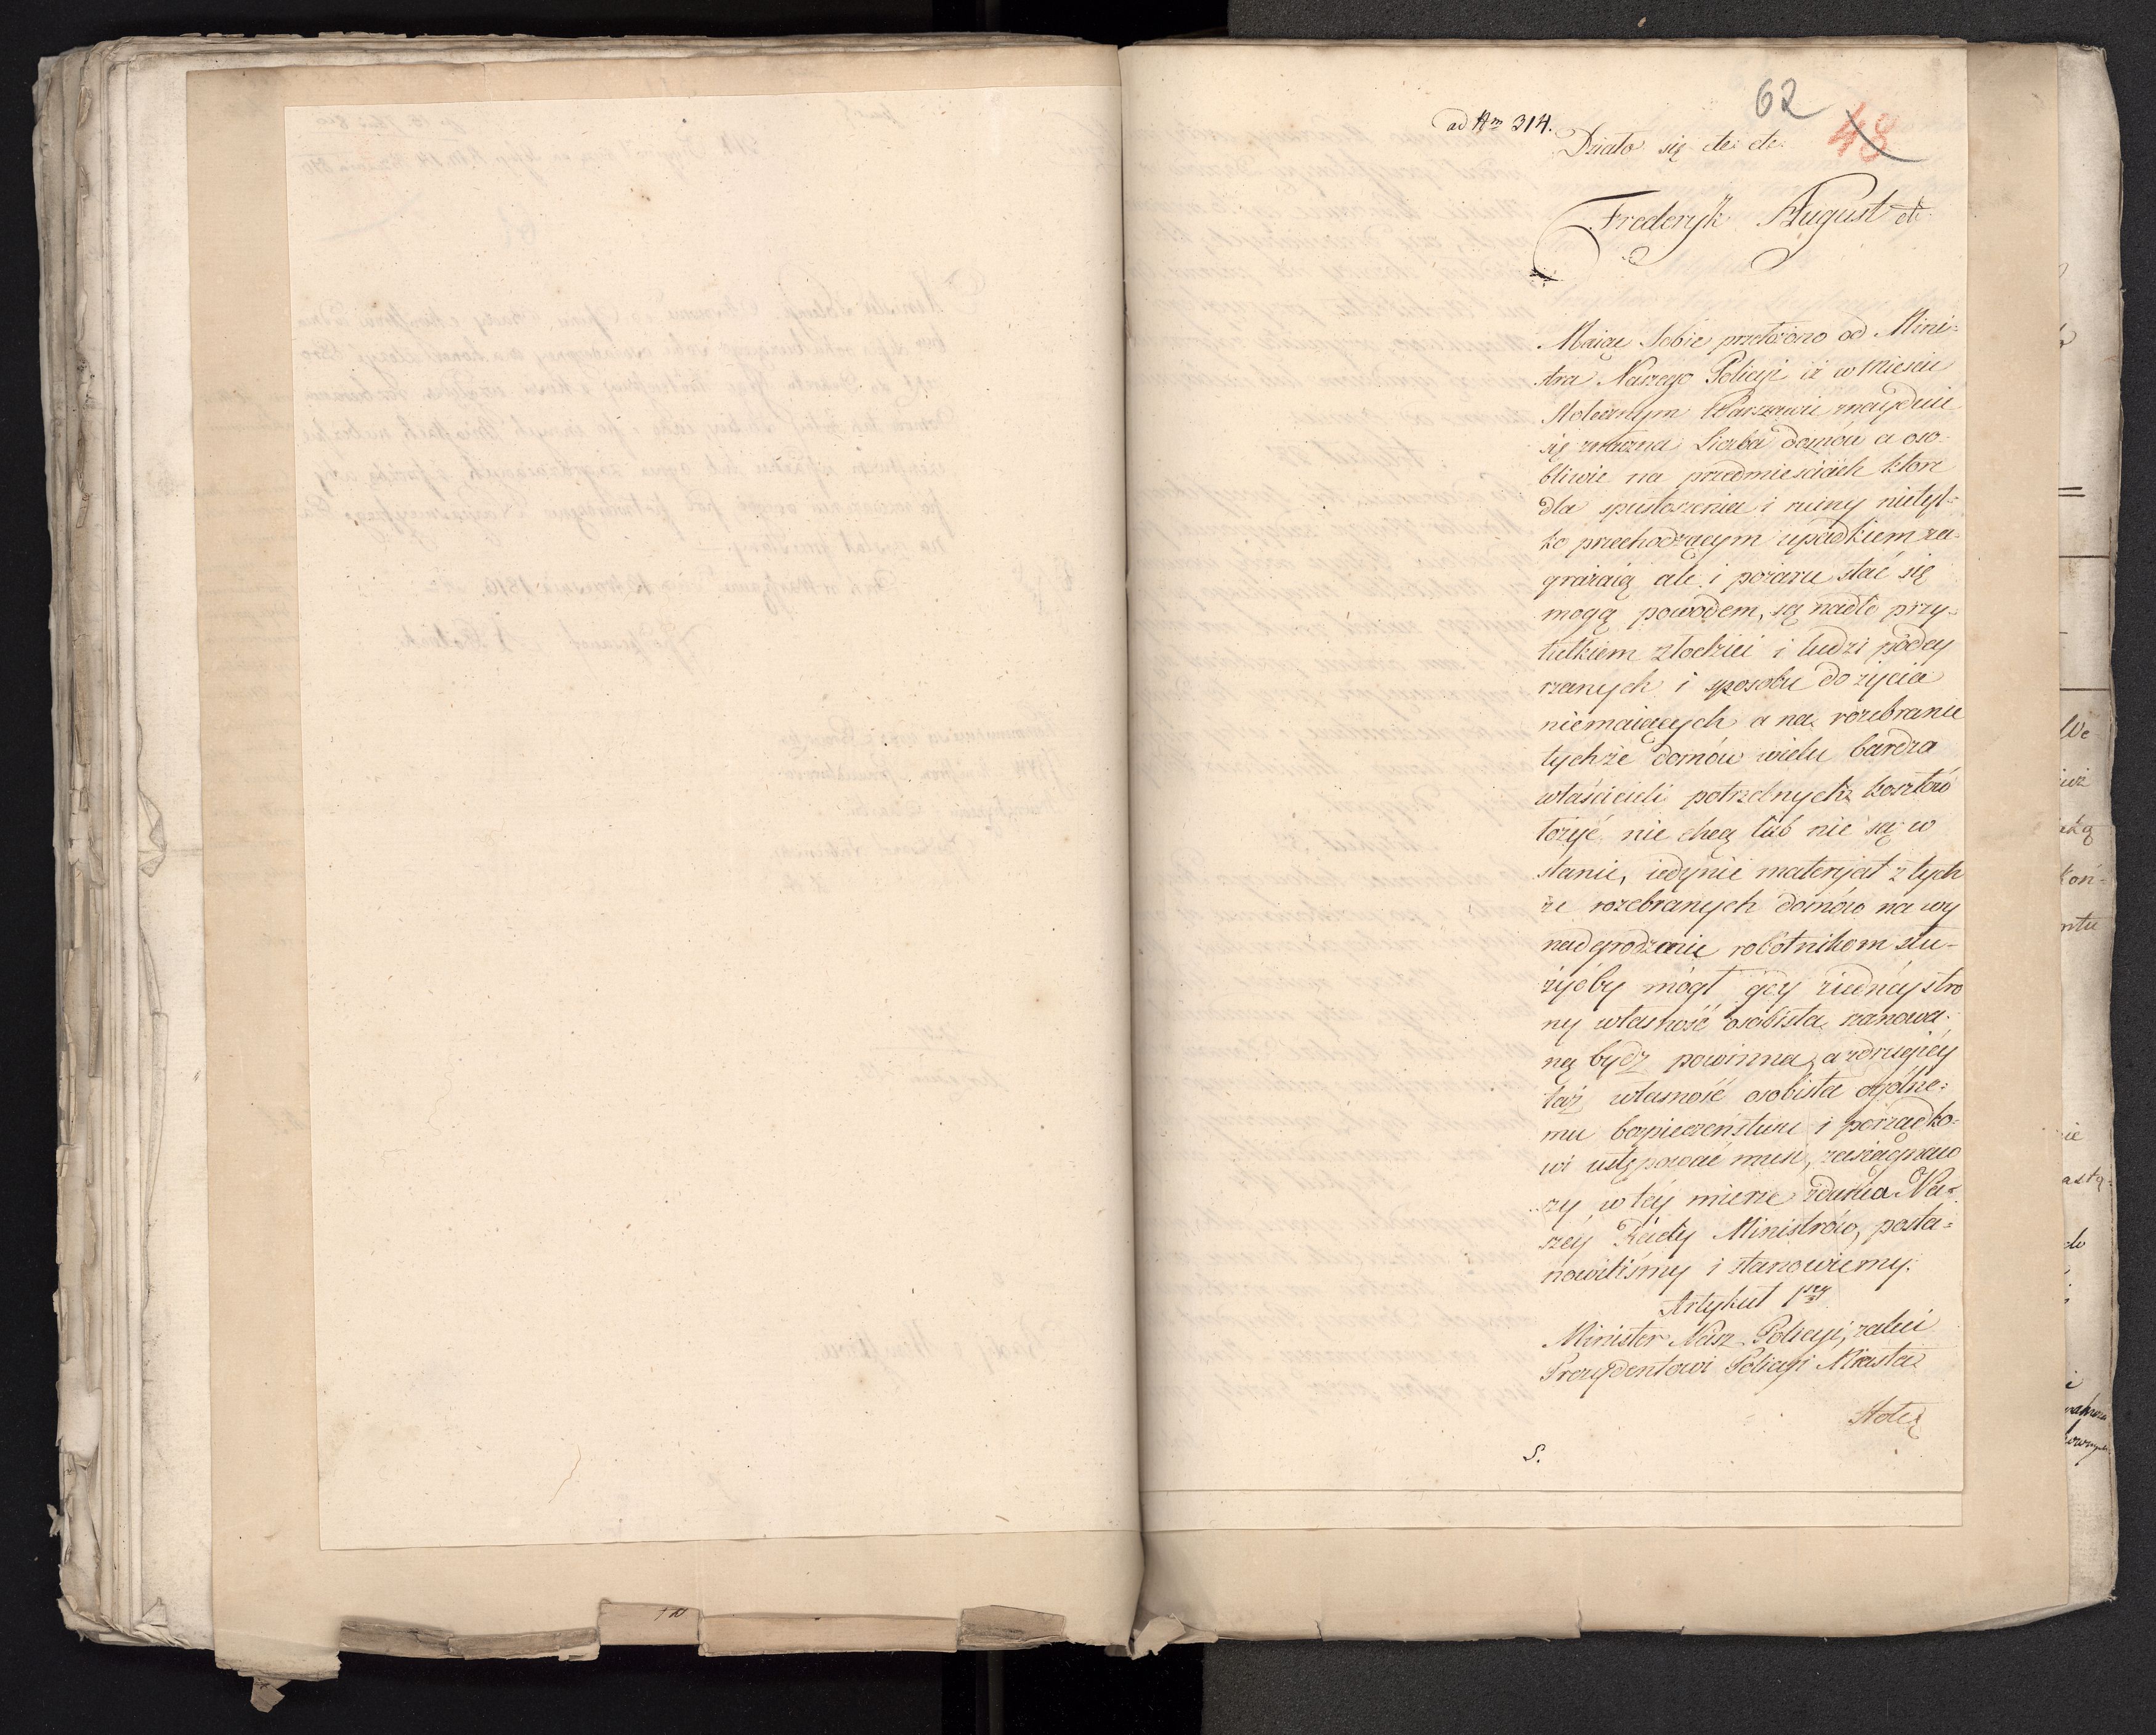 62
48
ad Nm 314.
Działo się etc: etc:
Frederyk August etc
Maiąc Sobie przełożono od Mini=
stra Naszego Policyi iż w Mieście
Stołecznym Warszawie znayduie
się znaczna Liczba domów a oso=
bliwie na przedmieściach które
dla spustoszenia i ruiny nietyl=
ko przechodzącym upadkiem za=
grażaią ale i pożaru stać się
mogą powodem, są nadto przy=
tułkiem złodziei i ludzi podey
rzanych i sposobu do życia
niemaiących a na rozebranie
tychże domów wielu bardzo
właścicieli potrzebnych kosztów
łożyć nie chcą lub nie są w
stanie, iedynie materyał z tych
że rozebranych domów na wy
nadgrodzenie robotnikom słu=
żyćby mógł gdy ziednéy stro
ny własność osobista szanowa=
ną bydz powinna, a zdrugiéy
taż własność osobista ogólne=
mu bezpieczeństwu i porządko=
wi ustępować musi, zasiągnąw
szy w téy mierze zdania Na=
széy Rady Ministrów, posta=
nowiliśmy i stanowiemy.
Artykuł 1szy
Minister Nasz Policyi, zaleci
Prezydentowi Policyi Miasta
S.